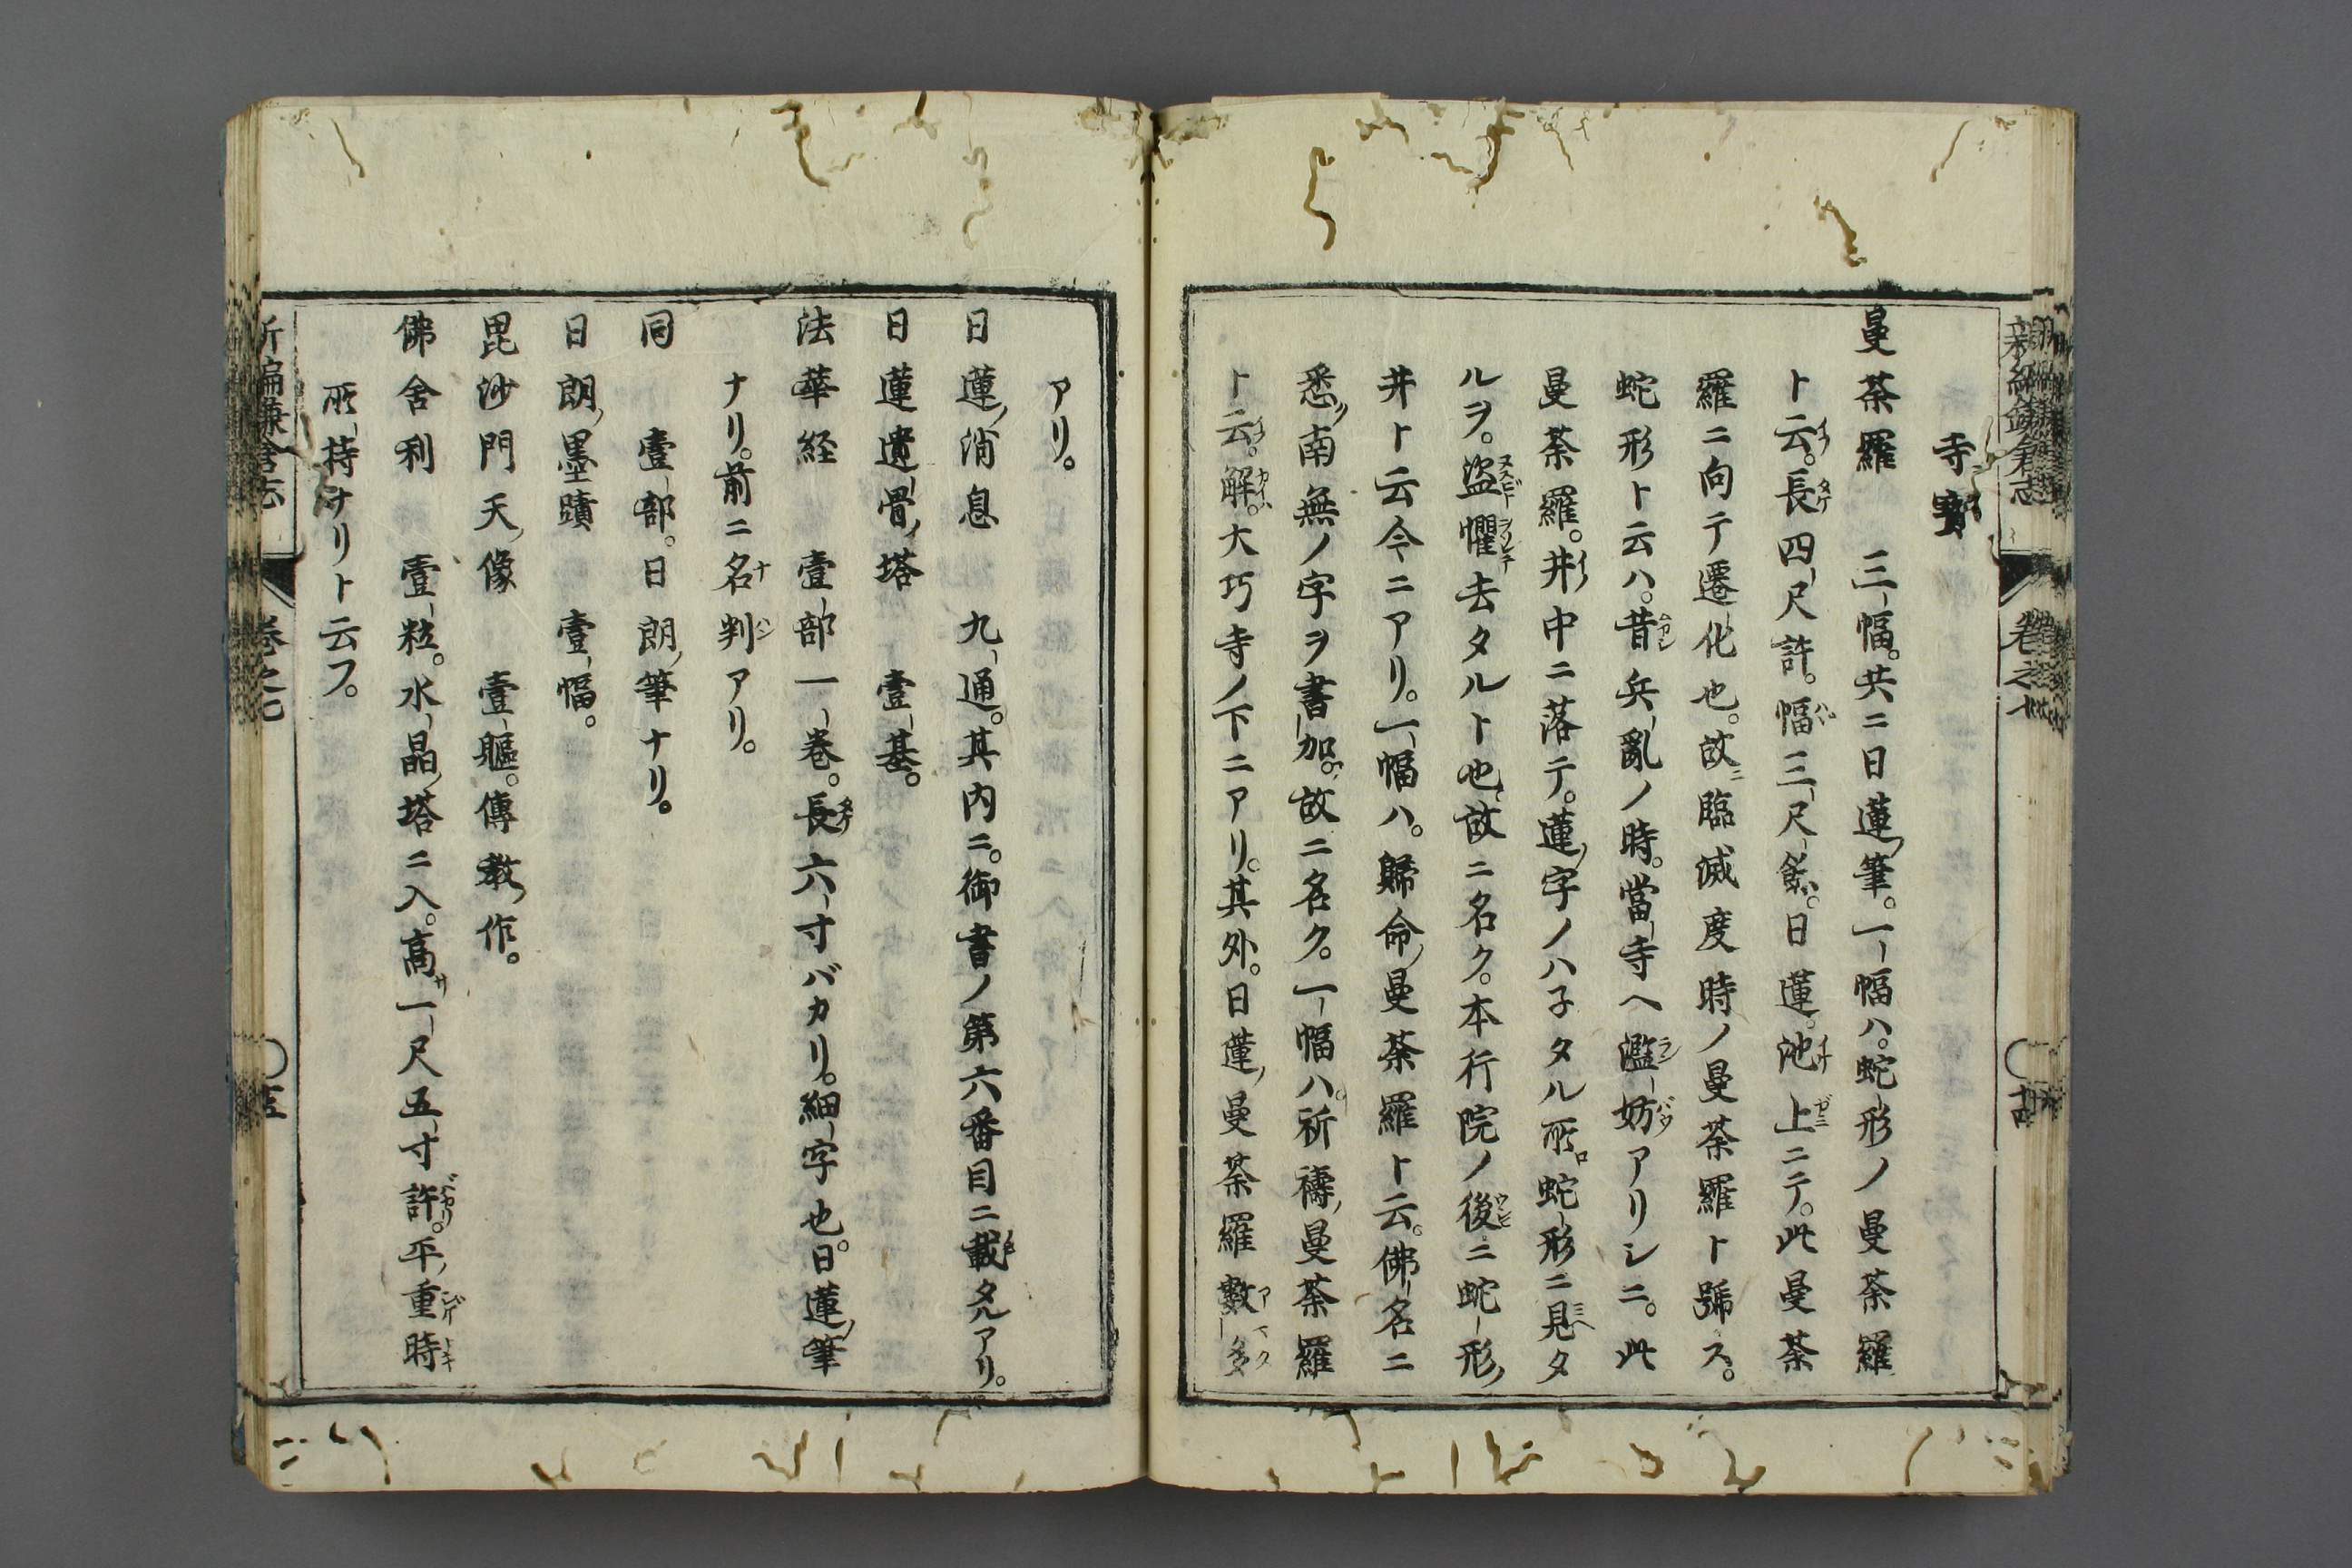 寺寶
曼荼羅　三幅。共ニ日蓮ノ筆。一幅ハ。蛇形ノ曼荼羅
ト云。長四尺許。幅三尺餘。日蓮。池上ニテ。此曼荼
羅ニ向テ遷化也。故ニ臨滅度時ノ曼荼羅ト號ス。
蛇形ト云ハ。昔兵亂ノ時。當寺ヘ濫妨アリシニ。此
曼荼羅。井中ニ落テ。蓮ノ字ノハ子タル所。蛇形ニ見ヘタ
ルヲ。盜懼去タルト也。故ニ名ク。本行院ノ後ニ蛇形ノ
井ト云今ニアリ。一幅ハ。歸命ノ曼荼羅ト云。佛名ニ
悉ク南無ノ字ヲ書加フ。故ニ名ク。一幅ハ。祈禱ノ曼荼羅
ト云。解。大巧寺ノ下ニアリ。其外。日蓮ノ曼荼羅數多
アリ。
日蓮ノ消息　九通。其内ニ。御書ノ第六番目ニ載タルアリ。
日蓮遺骨ノ塔　壹基。
法華経　壹部一巻。長六寸バカリ。細字也。日蓮ノ筆
ナリ。前ニ名判アリ。
同　壹部。日朗ノ筆ナリ。
日朗ノ墨蹟　壹幅。
毘沙門天ノ像　壹軀。傳教ノ作。
佛舍利　壹粒。水晶ノ塔ニ入。高サ一尺五寸許。平ノ重時
所持ナリト云フ。